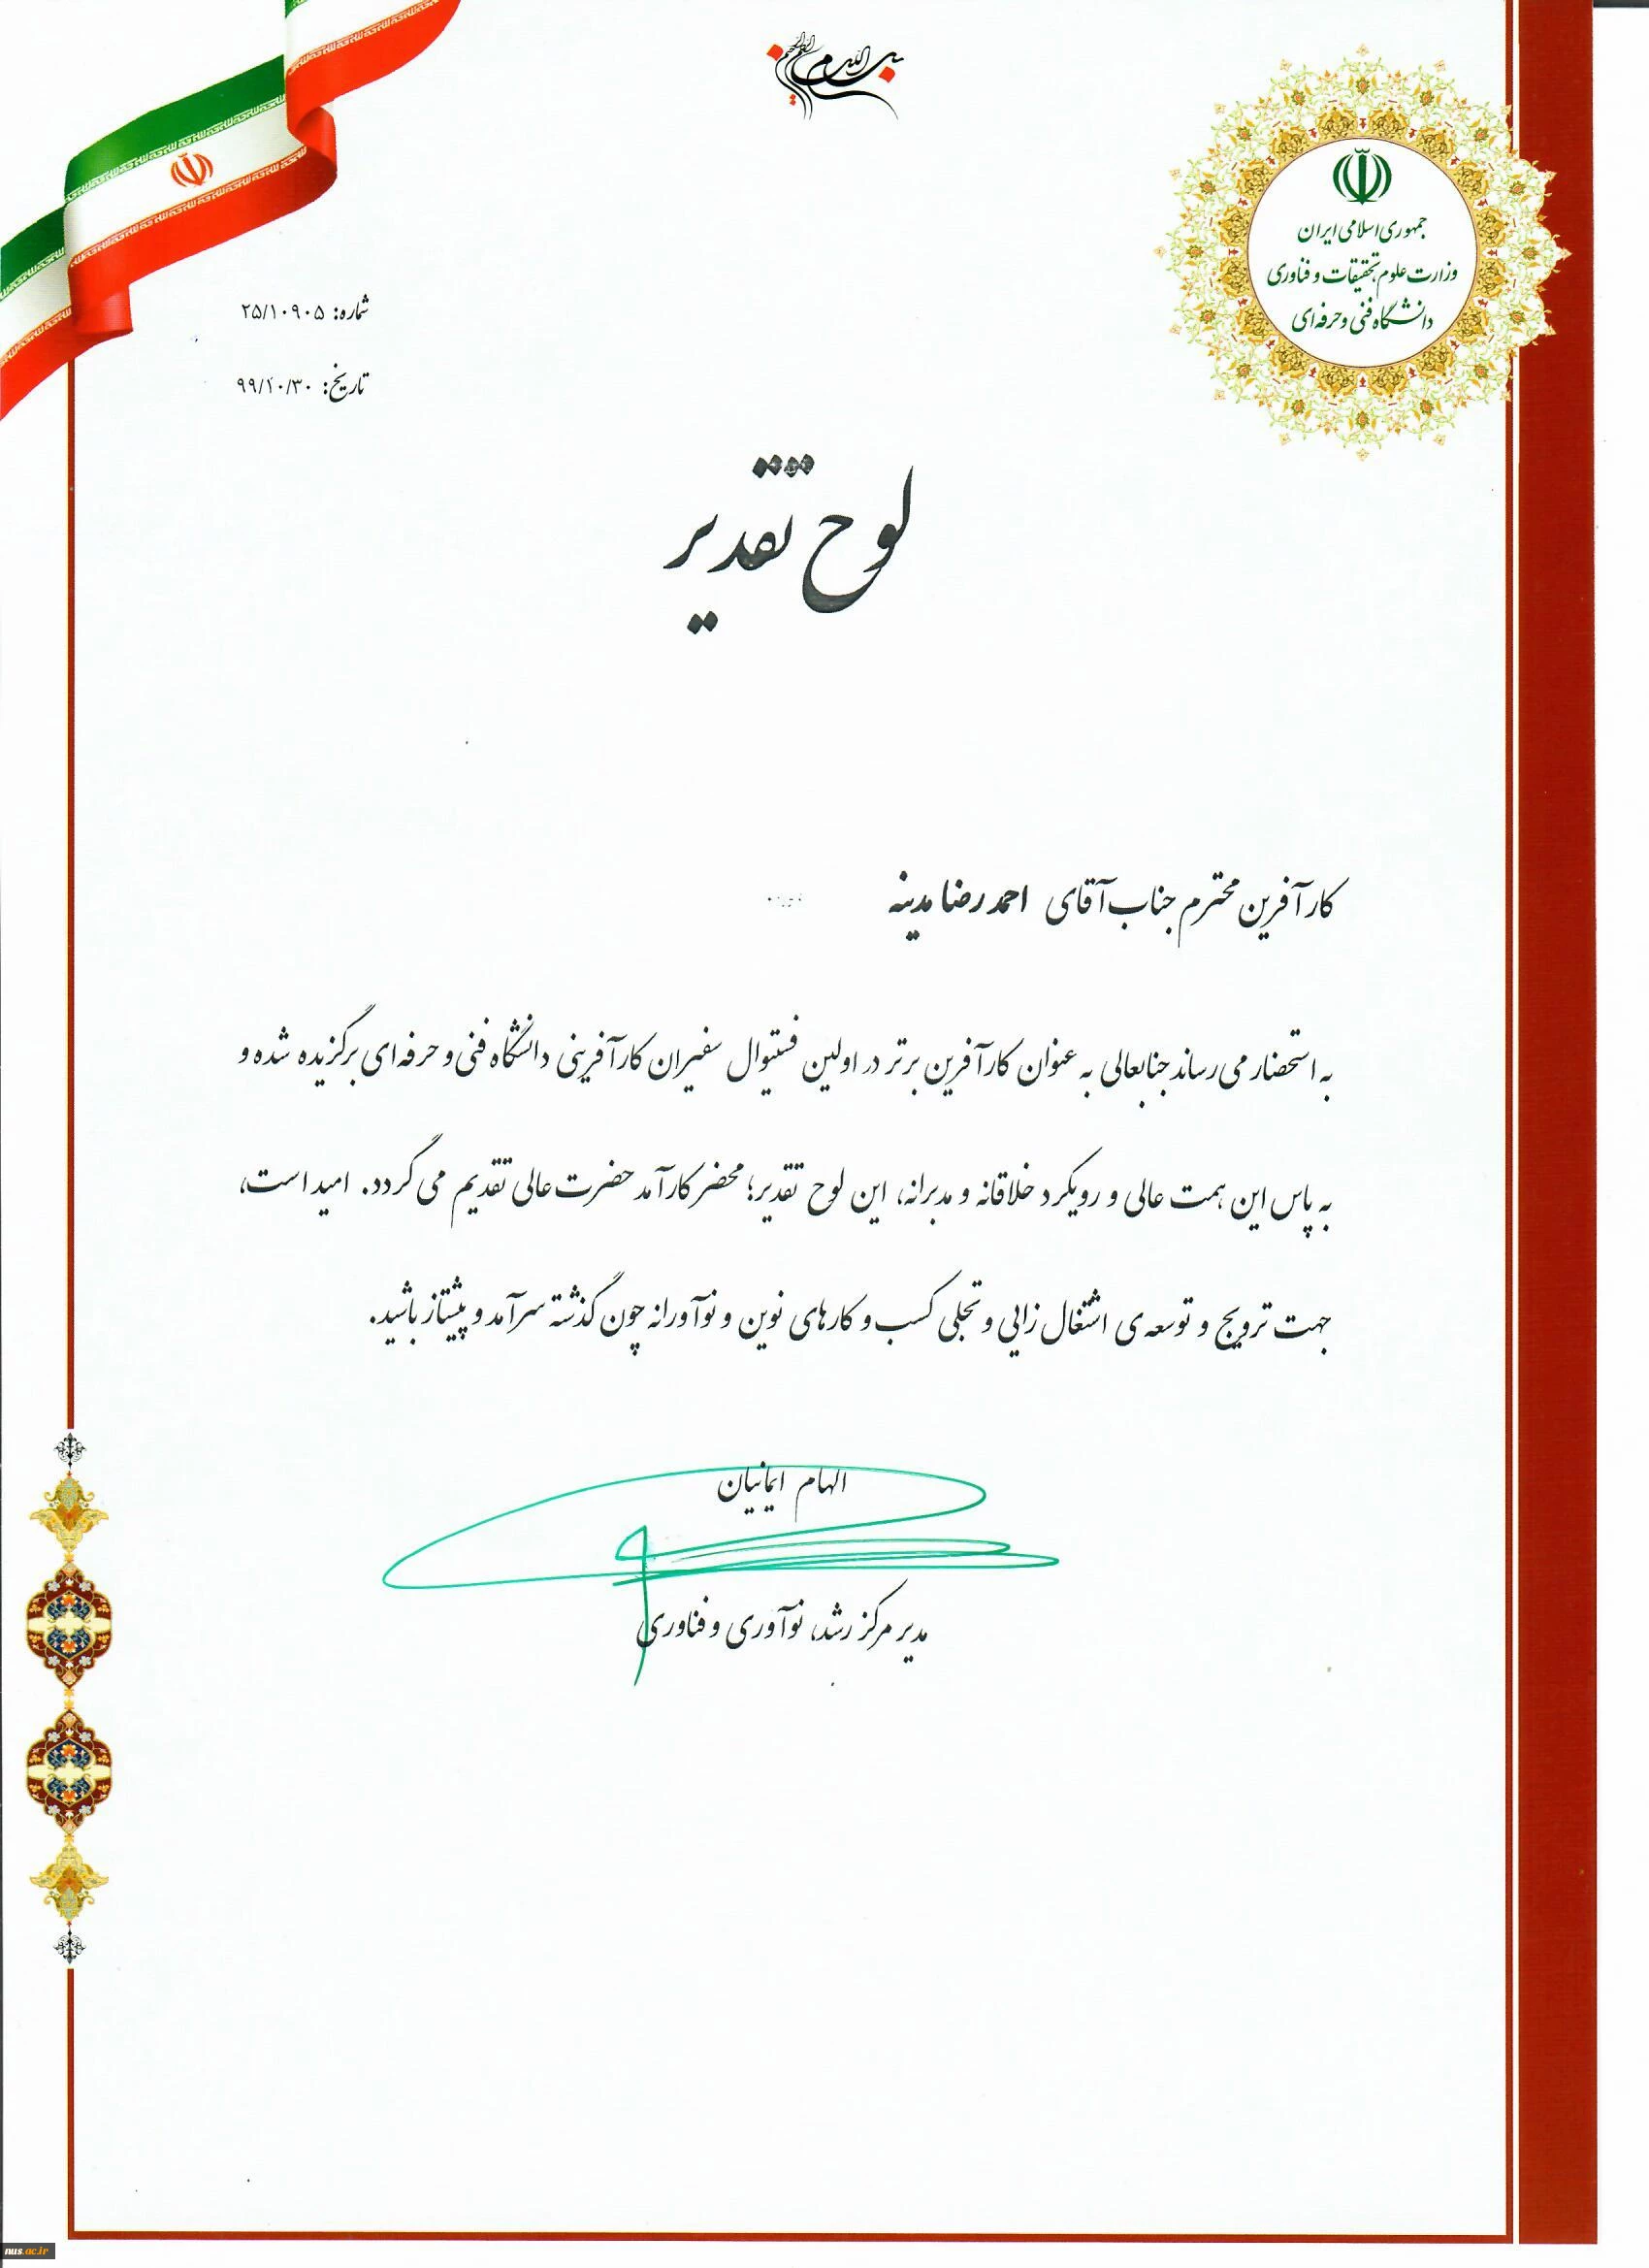 بسم الله الرحمن الرحیم
جمهوری اسلامی ایران
وزارت علوم، تحقیقات و فناوری
دانشگاه فنی و حرفه‌ای
شماره: ۲۵/۱۰۹۰۵
تاریخ: ۹۹/۱۰/۳۰
لوح تقدیر
کارآفرین محترم جناب آقای احمدرضا مدینه
به استحضار می رساند جنابعالی به عنوان کارآفرین برتر در اولین فستیوال سفیران کارآفرینی دانشگاه فنی و حرفه ای برگزیده شده و
به پاس این همت عالی و رویکرد خلاقانه و مدبرانه، این لوح تقدیر؛ محضر کارآمد حضرت عالی تقدیم می گردد. امید است،
جهت ترویج و توسعه ی اشتغال زایی و تجلی کسب و کارهای نوین و نوآورانه چون گذشته سرآمد و پیشتاز باشید.
الهام ایمانیان
مدیر مرکز رشد، نوآوری و فناوری
nus.ac.ir